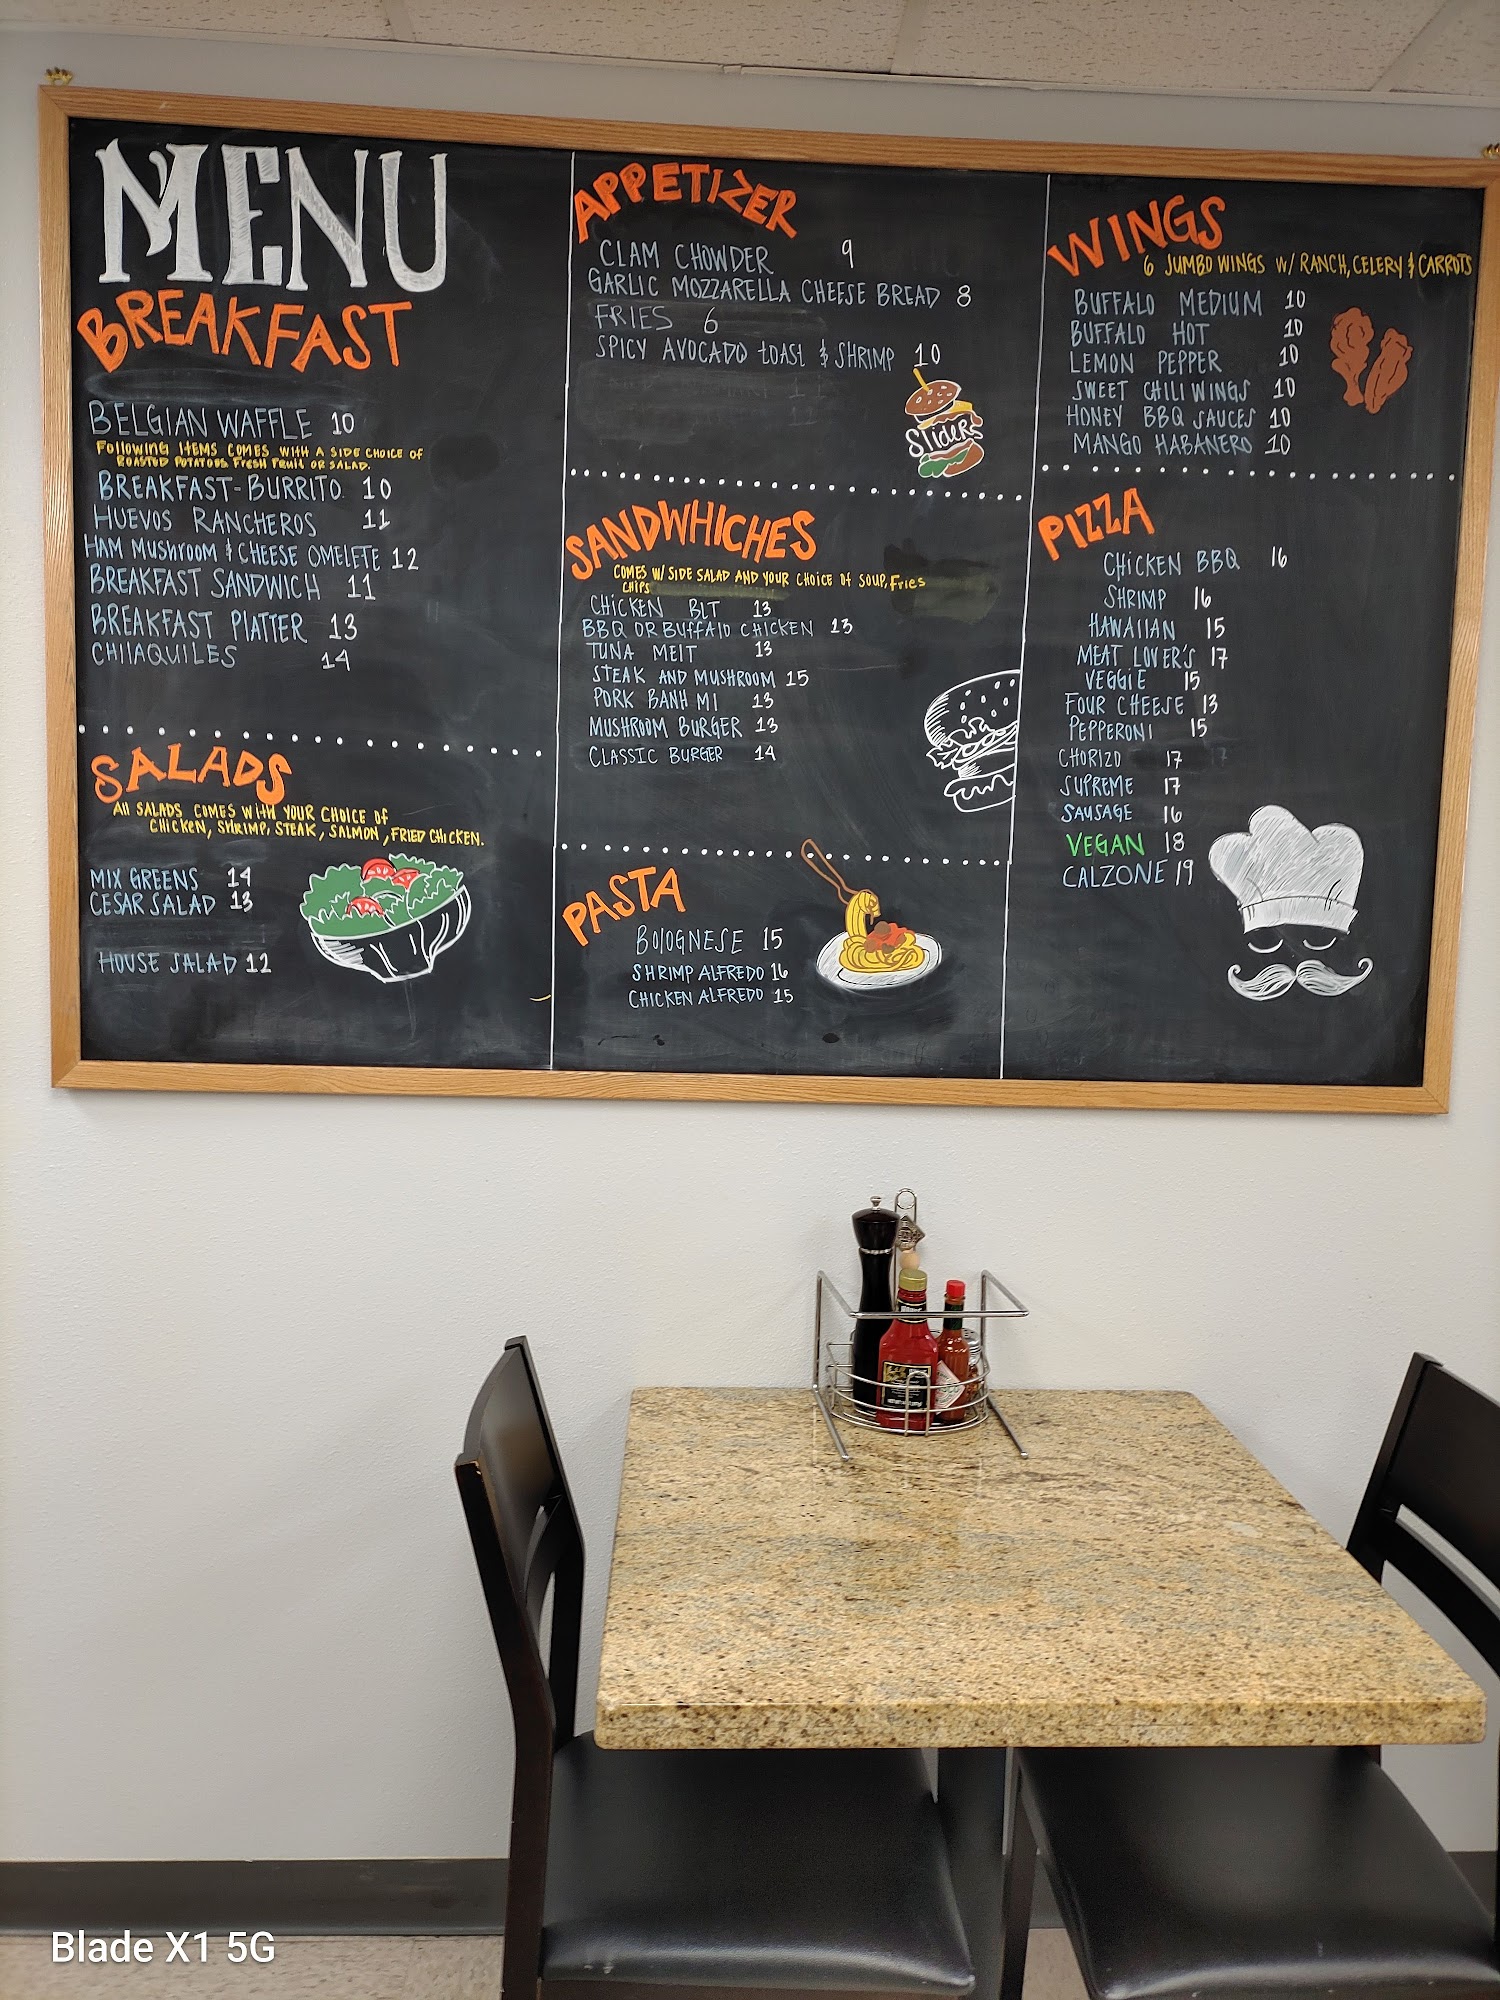 MENU
BREAKFAST
BELGIAN WAFFLE 10
FOLLOWING ITEMS COMES WITH A SIDE CHOICE OF
ROASTED POTATOES FRESH FRUIT OR SALAD.
BREAKFAST-BURRITO 10
HUEVOS RANCHEROS 11
HAM MUSHROOM & CHEESE OMELETE 12
BREAKFAST SANDWICH 11
BREAKFAST PLATTER 13
CHILAQUILES 14
SALADS
All SALADS COMES WITH YOUR CHOICE OF
CHICKEN, SHRIMP, STEAK, SALMON, FRIED CHICKEN.
MIX GREENS 14
CESAR SALAD 13
HOUSE SALAD 12
APPETIZER
CLAM CHOWDER 9
GARLIC MOZZARELLA CHEESE BREAD 8
FRIES 6
SPICY AVOCADO TOAST & SHRIMP 10
SlideRS
SANDWHICHES
COMES W/ SIDE SALAD AND YOUR CHOICE OF SOUP, Fries
CHIPS
CHICKEN BLT 13
BBQ OR BUFFALO CHICKEN 13
TUNA MELT 13
STEAK AND MUSHROOM 15
PORK BANH MI 13
MUSHROOM BURGER 13
CLASSIC BURGER 14
PASTA
BOLOGNESE 15
SHRIMP ALFREDO 16
CHICKEN ALFREDO 15
WINGS
6 JUMBO WINGS W/ RANCH, CELERY & CARROTS
BUFFALO MEDIUM 10
BUFFALO HOT 10
LEMON PEPPER 10
SWEET CHILI WINGS 10
HONEY BBQ SAUCES 10
MANGO HABANERO 10
PIZZA
CHICKEN BBQ 16
SHRIMP 16
HAWAIIAN 15
MEAT LOVER'S 17
VEGGIE 15
FOUR CHEESE 13
PEPPERONI 15
CHORIZO 17
SUPREME 17
SAUSAGE 16
VEGAN 18
CALZONE 19
Blade X1 5G